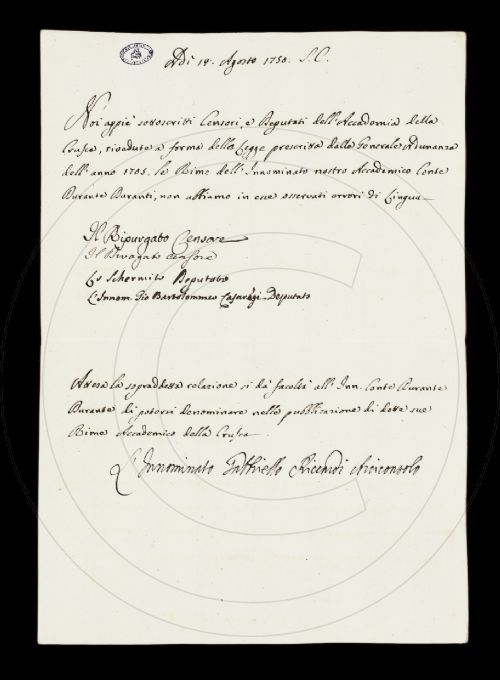 Adi 18. Agosto 1750. S. C.
Noi appiè sottoscritti Censori, e Deputati dell'Accademia della
Crusca, rivedute a forma della Legge prescritta dalla Generale Adunanza
dell'anno 1705. le Rime dell'Innominato nostro Accademico Conte
Durante Duranti, non abbiamo in esse osservati errori di Lingua
Il Ripurgato Censore
Il Divagato Censore
Lo Schermito Deputato
L'Innom. Gio Bartolommeo Casaregi Deputato
Attesa la sopraddetta relazione si dà facoltà all'Inn. Conte Durante
Durante di potersi denominare nella pubblicazione di dette sue
Rime Accademico della Crusca
L'Innominato Gabbriello Riccardi Arciconsolo